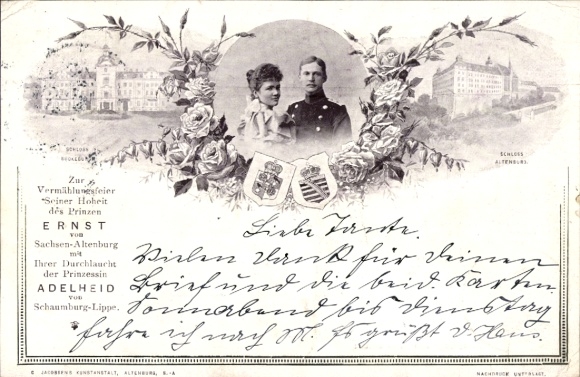 SCHLOSS
SCHLOSS
ALTENBURG.
Zur
Vermählungsfeier
Seiner Hoheit
des Prinzen
ERNST
von
Sachsen-Altenburg
mit
Ihrer Durchlaucht
der Prinzessin
ADELHEID
von
Schaumburg-Lippe.
Liebe Tante.
Vielen Dank für deinen
Brief und die beid. Karten.
Sonnabend bis Dienstag
fahre ich nach M. Es grüßt d. Hans.
C. JACOBSEN'S KUNSTANSTALT, ALTENBURG, S.-A
NACHDRUCK UNTERSAGT.